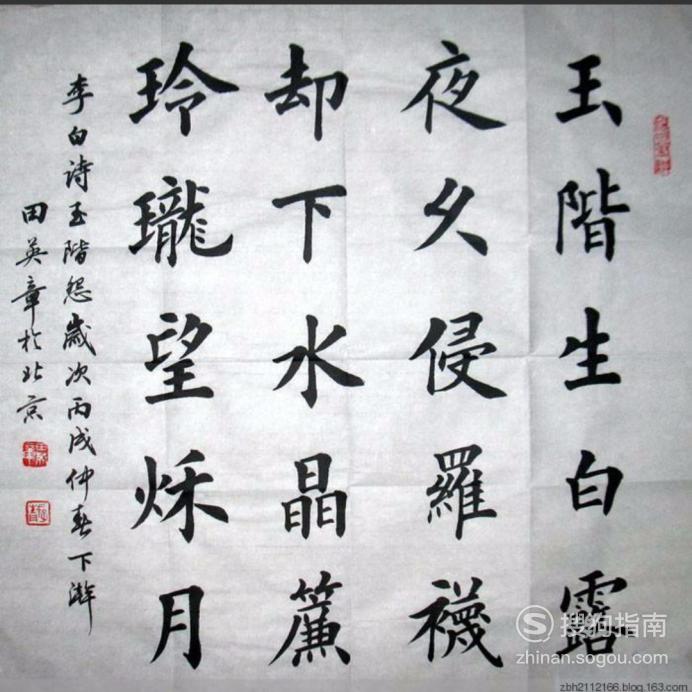 玉階生白露
夜久侵羅襪
却下水晶簾
玲瓏望秌月
李白诗玉階怨歲次丙戌仲春下澣
田英章於北京
S 搜狗指南
zhinan.sogou.com
zbh2112166.blog.163.com